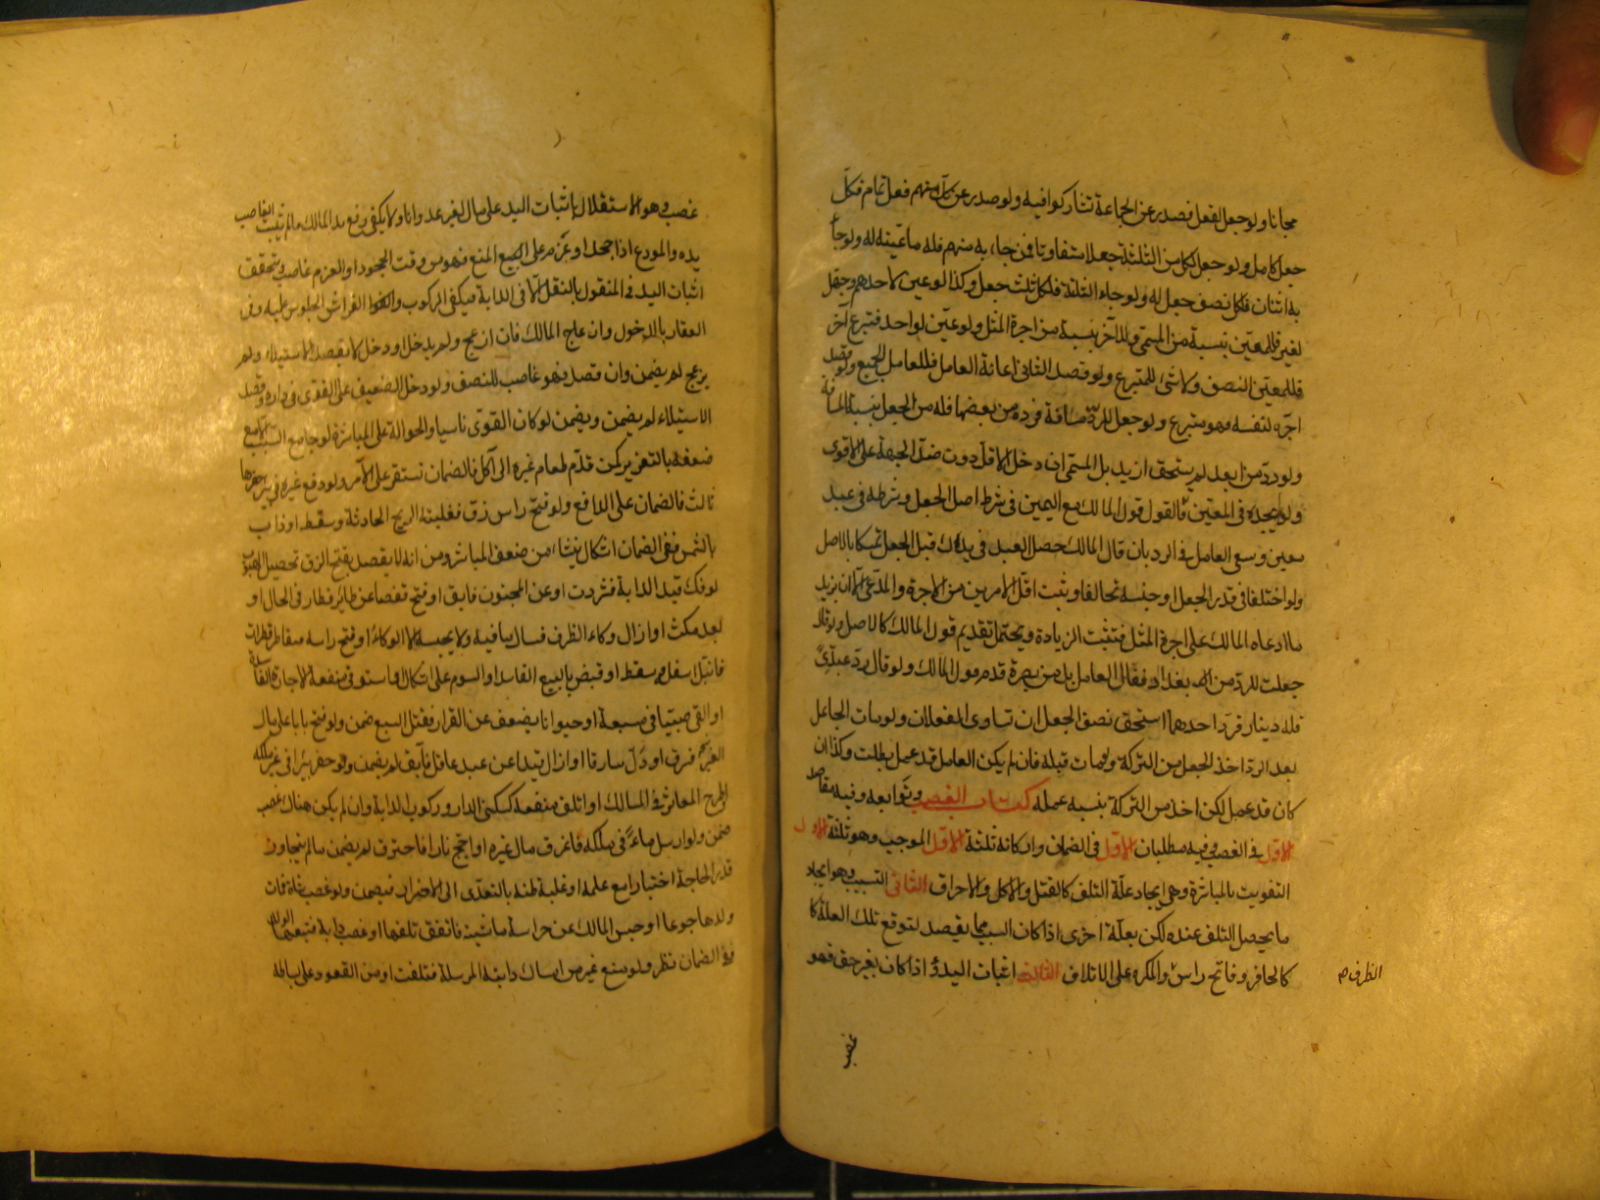 مجانا ولو جعل لفعل فصدر عن الجماعة تشاركوا فيه ولو صدر عن كل منهم فعل تام فلكل
جعل كامل ولو جعل لكل من الثلثة جعلا متفاوتا فمن جاء به منهم فله ما عينه له ولو جاء
به اثنان فلكل نصف جعله ولو جاء الثلثة فلكل ثلث جعله وكذا لو عين لاحدهم وجهل
لغيره فللمعين بنسبة من المسمى وللآخر بنسبة من اجرة المثل ولو عين لواحد فتبرع آخر
فللمعين النصف ولا شئ للمتبرع ولو قصد الثاني اعانة العامل فللعامل الجميع ولو قصد
اجره لنفسه فهو متبرع ولو جعل للرد من مسافة فرده من بعضها فله من الجعل بنسبة المسافة
ولو رد من ابعد لم يستحق ازيد بل المسمى ان دخل الاقل دون ضد الجهة على الاقوى
ولو لم يجده في المعين فالقول قول المالك مع اليمين في شرط اصل الجعل وشرطه في عبد
معين وسعى العامل في الرد بان قال المالك حصل العبد في يدك قبل الجعل تمسكا بالاصل
ولو اختلفا في قدر الجعل او جنسه تحالفا ويثبت اقل الامرين من الاجرة والمدعى الا ان يزيد
ما ادعاه المالك على اجرة المثل فتثبت الزيادة ويحتمل تقديم قول المالك كالاصل ولو قال
جعلت للرد من بغداد فقال العامل بل من بصرة قدم قول المالك ولو قال رد عبدي
فله دينار فرد احدهما استحق نصف الجعل ان تساوى الفعلان ولو مات الجاعل
بعد الرد اخذ الجعل من التركة ولو مات قبله فان لم يكن العامل قد عمل بطلت وكذا ان
كان قد عمل لكن اخذ من التركة بنسبة عمله كتاب الغصب وتوابعه وفيه مقاصد
الاول في الغصب وفيه مطلبان الاول في الضمان واركانه ثلثة الاول الموجب وهو ثلثة الاول
التفويت بالمباشرة وهي ايجاد علة التلف كالقتل والاكل والاحراق الثاني التسبيب وهو ايجاد
ما يحصل التلف عنده لكن بعلة اخرى اذا كان السبب مما يقصد لتوقع تلك العلة كا
كالحافر وفاتح راس والمكره على الاتلاف الثالث اثبات اليد و اذا كان بغير حق فهو
الظرف م
غصب
غصب وهو الاستقلال باثبات اليد على مال الغير عدوانا ولا يكفي رفع يد المالك ما لم يثبت الغاصب
يده والمودع اذا جحد او عزم على المنع فهو من وقت الجحود او العزم غاصب ويتحقق
اثبات اليد في المنقول بالنقل الا في الدابة فيكفي الركوب والفراش الجلوس عليه وفي
العقار بالدخول وان عاج المالك فان ازعج ولم يدخل او دخل لا بقصد الاستيلاء ولم
يزعج لم يضمن وان قصد فهو غاصب للنصف ولو دخل الضعيف على القوي في داره وقصد
الاستيلاء لم يضمن ويضمن لو كان القوي نائيا والحوالة على المباشرة لو جامع السبب الا مع
ضعفه بالتغرير كمن قدم طعام غيره الى آكل فالضمان تستقر على الآمر ولو دفع غيره في بئر حفرها
ثالث فالضمان على الدافع ولو فتح راس زق فقلبته الريح الحادثة وسقط او ذاب
بالشمس ففي الضمان اشكال ينشاء من ضعف المباشر ومن انه لا يقصد بفتح الزق تحصيل الهبوب
لو فك قيد الدابة فشردت او عن المجنون فابق او فتح قفصا عن طائر فطار في الحال او
بعد مكث او ازال وكاء الظرف فسال ما فيه ولا يحبسه الا الوكاء او فتح راسه فتقاطر قطرات
فابتل اسفله وسقط او قبض بالبيع الفاسد او السوم على اشكال او استوفى منفعة الاجارة الفاسدة
او القى صبيا في مسبعة او حيوانا يضعف عن الفرار فقتله السبع ضمن ولو فتح بابا على مال
الغير فسرق او دل سارقا او ازال قيدا عن عبد عاقل فابق لم يضمن ولو حفر بئرا في غير ملكه
او طرح المعاثر في المسالك او اتلف منفعة كسكنى الدار وركوب الدابة وان لم يكن هناك غصب
ضمن ولو ارسل ماء في ملكه فاغرق مال غيره او اجج نارا فاحترق لم يضمن ما لم يتجاوز
قدر الحاجة اختيارا مع علمه او غلبة ظنه بالتعدي الى الاضرار فيضمن ولو غصب شاة فمات
ولدها جوعا او حبس المالك عن حراسة ماشيته فاتفق تلفها او غصب دابة فتبعها الولد
ففي الضمان نظر ولو منع غيره من امساك دابته المرسلة فتلفت او من القعود على بساطه